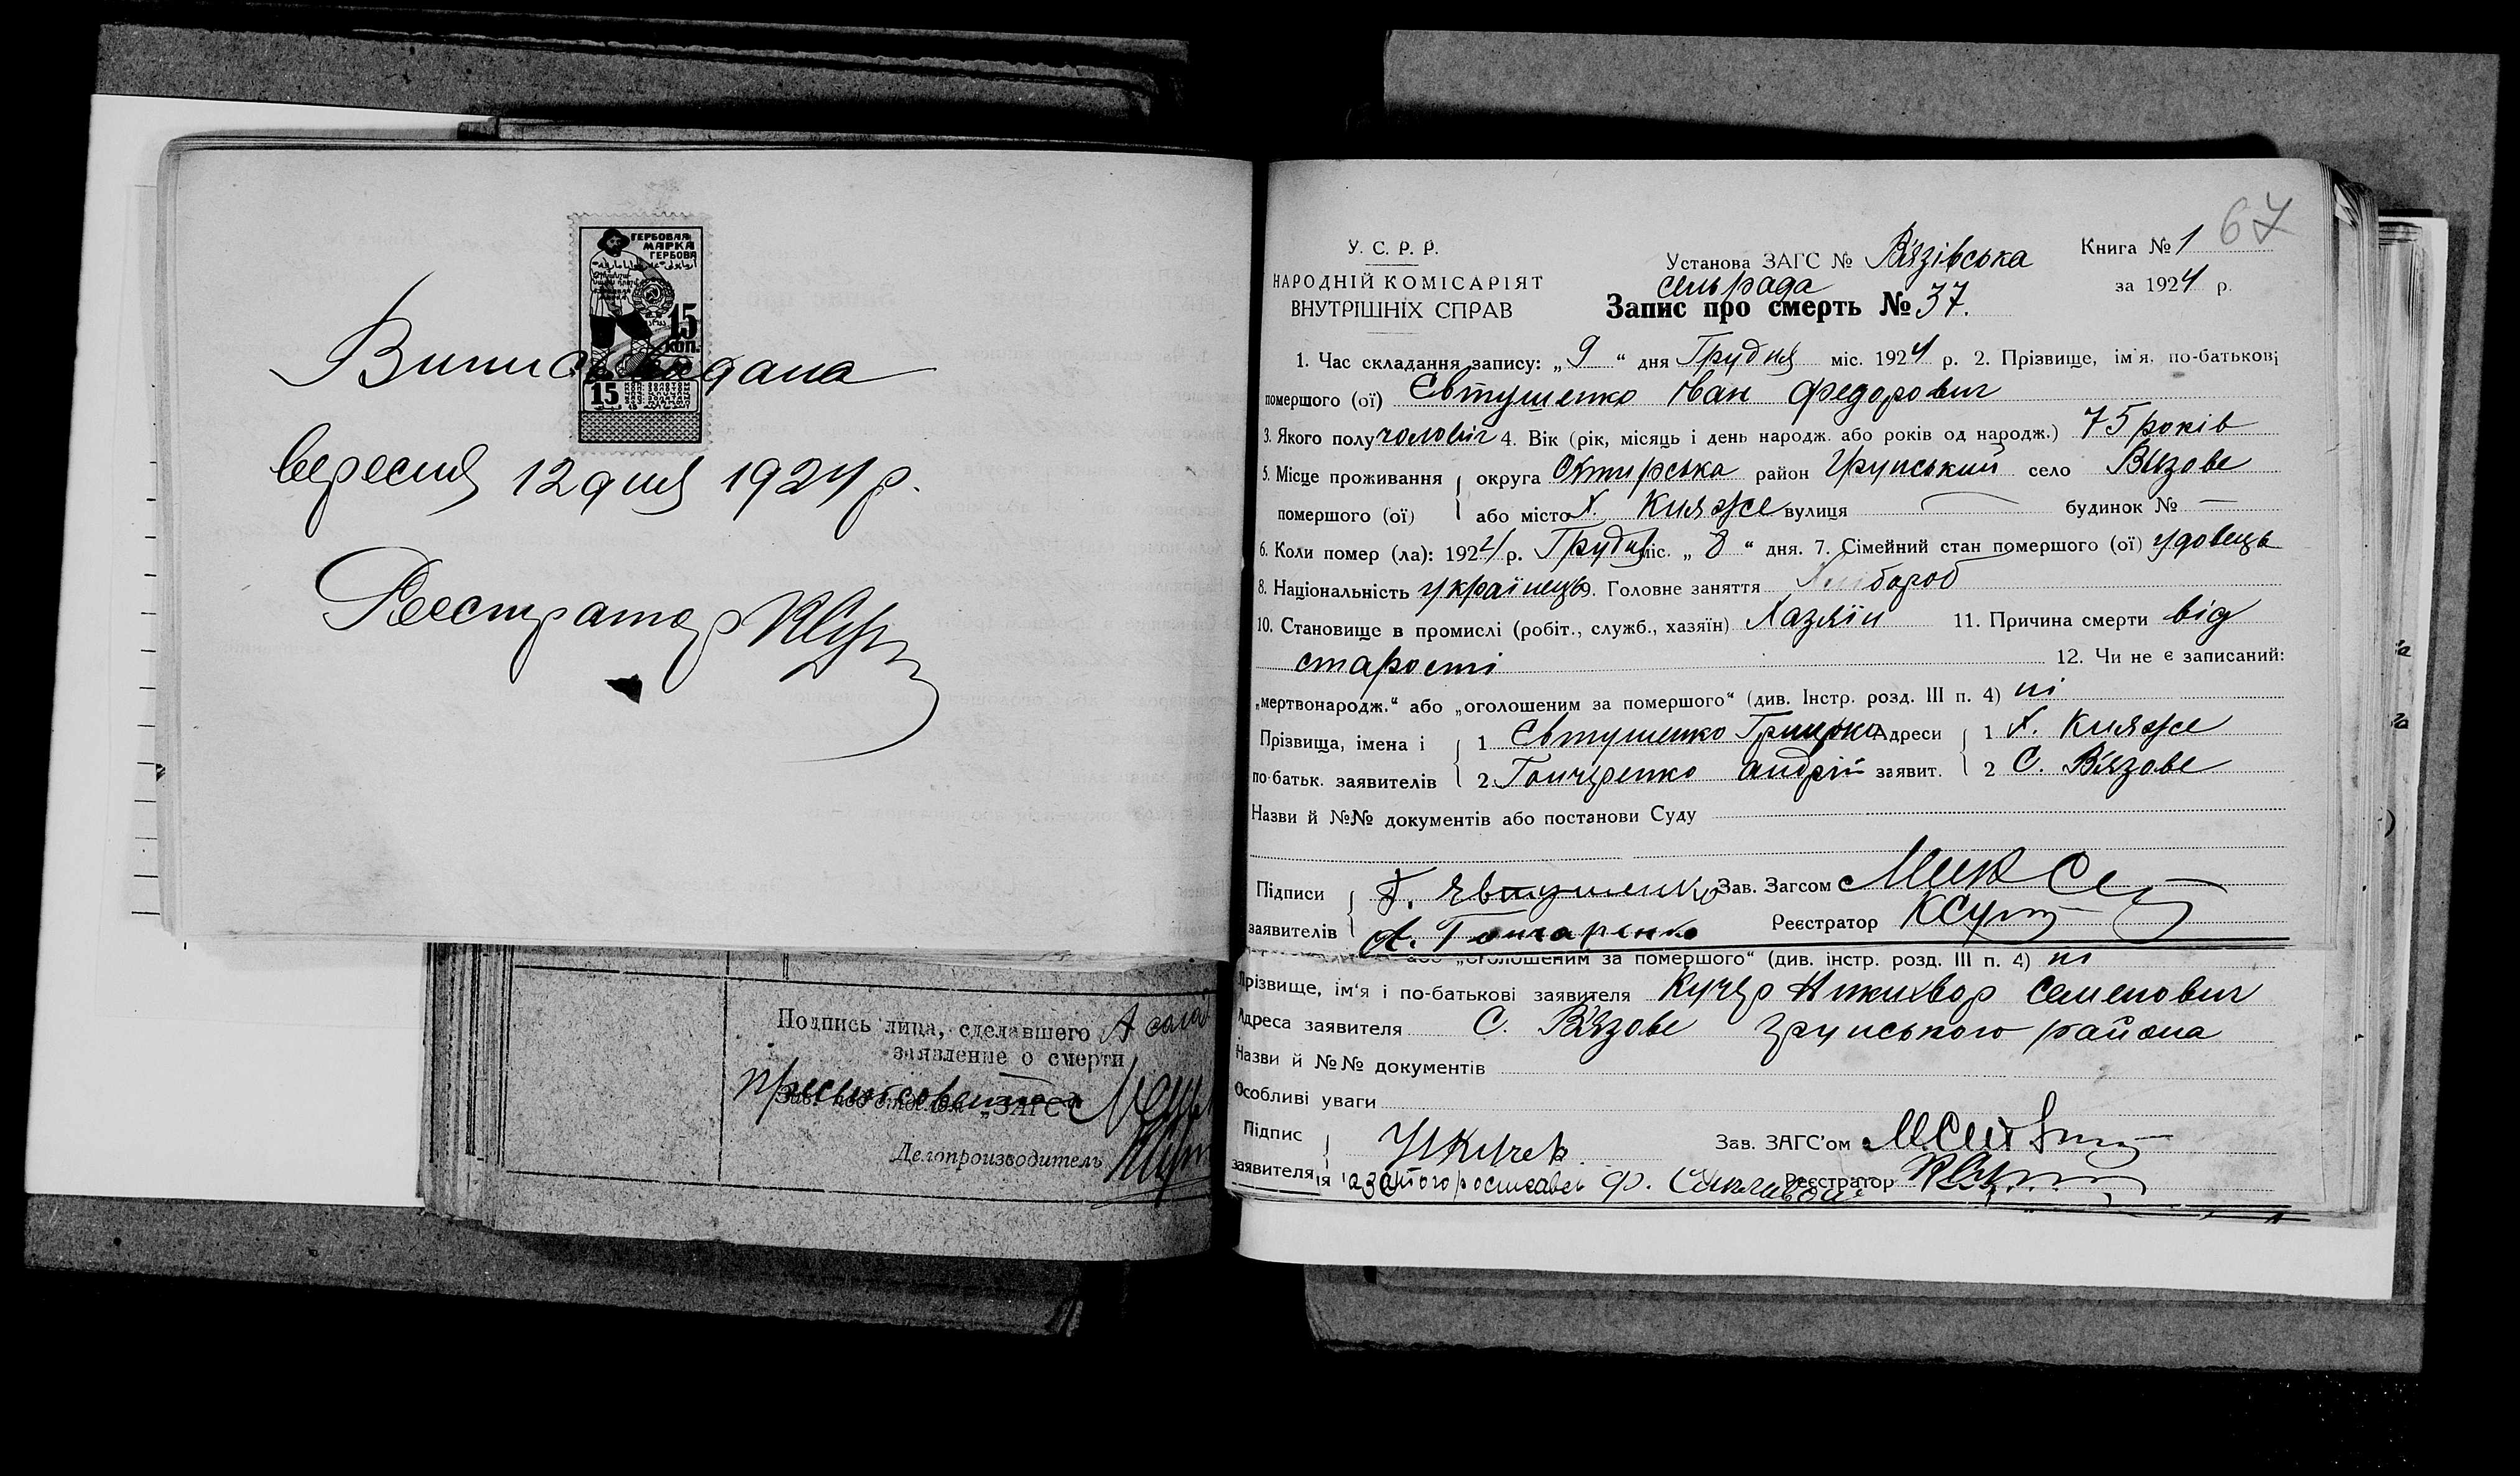 ГЕРБОВАЯ
МАРКА
ГЕРБОВА
15
КОП.
15
Випись видана
вересня 12 дня 1924 р.
Реєстратор
Подпись лица, сделавшего
заявление о смерти
Зав. подотделом „ЗАГС“
Делопроизводитель
67
У. С. Р. Р.
НАРОДНІЙ КОМІСАРІЯТ
ВНУТРІШНІХ СПРАВ
Установа ЗАГС № Вязівська
сельрада
Книга № 1
за 1924 р.
Запис про смерть № 37.
1. Час складання запису: „9“ дня Грудня міс. 1924 р. 2. Прізвище, ім'я, по-батькові
помершого (ої) Євтушенко Іван Федорович
3. Якого полу чоловіч 4. Вік (рік, місяць і день народж. або років од народж.) 75 років
5. Місце проживання округа Охтирська район Грунський село Вязове
помершого (ої) або місто х. Княже вулиця — будинок № —
6. Коли помер (ла): 1924 р. Грудня міс. „8“ дня. 7. Сімейний стан помершого (ої) удовець
8. Національність українець 9. Головне заняття Хлібороб
10. Становище в промислі (робіт., служб., хазяїн) Хазяїн 11. Причина смерти від
старості 12. Чи не є записаний:
„мертвонародж.“ або „оголошеним за помершого“ (див. Інстр. розд. III п. 4) ні
Прізвища, імена і 1 Євтушенко Грицько Адреси 1 х. Княже
по-батьк. заявителів 2 Гончаренко Андрій заявит. 2 С. Вязове
Назви й №№ документів або постанови Суду
Підписи Г. Явтушенко Зав. Загсом
заявителів А. Гончаренко Реєстратор
або „оголошеним за помершого“ (див. інстр. розд. III п. 4) ні
Прізвище, ім'я і по-батькові заявителя Кучер Никифор Семенович
Адреса заявителя С. Вязове Грунського района
Назви й №№ документів
Особливі уваги
Підпис Зав. ЗАГС'ом
заявителя Реєстратор